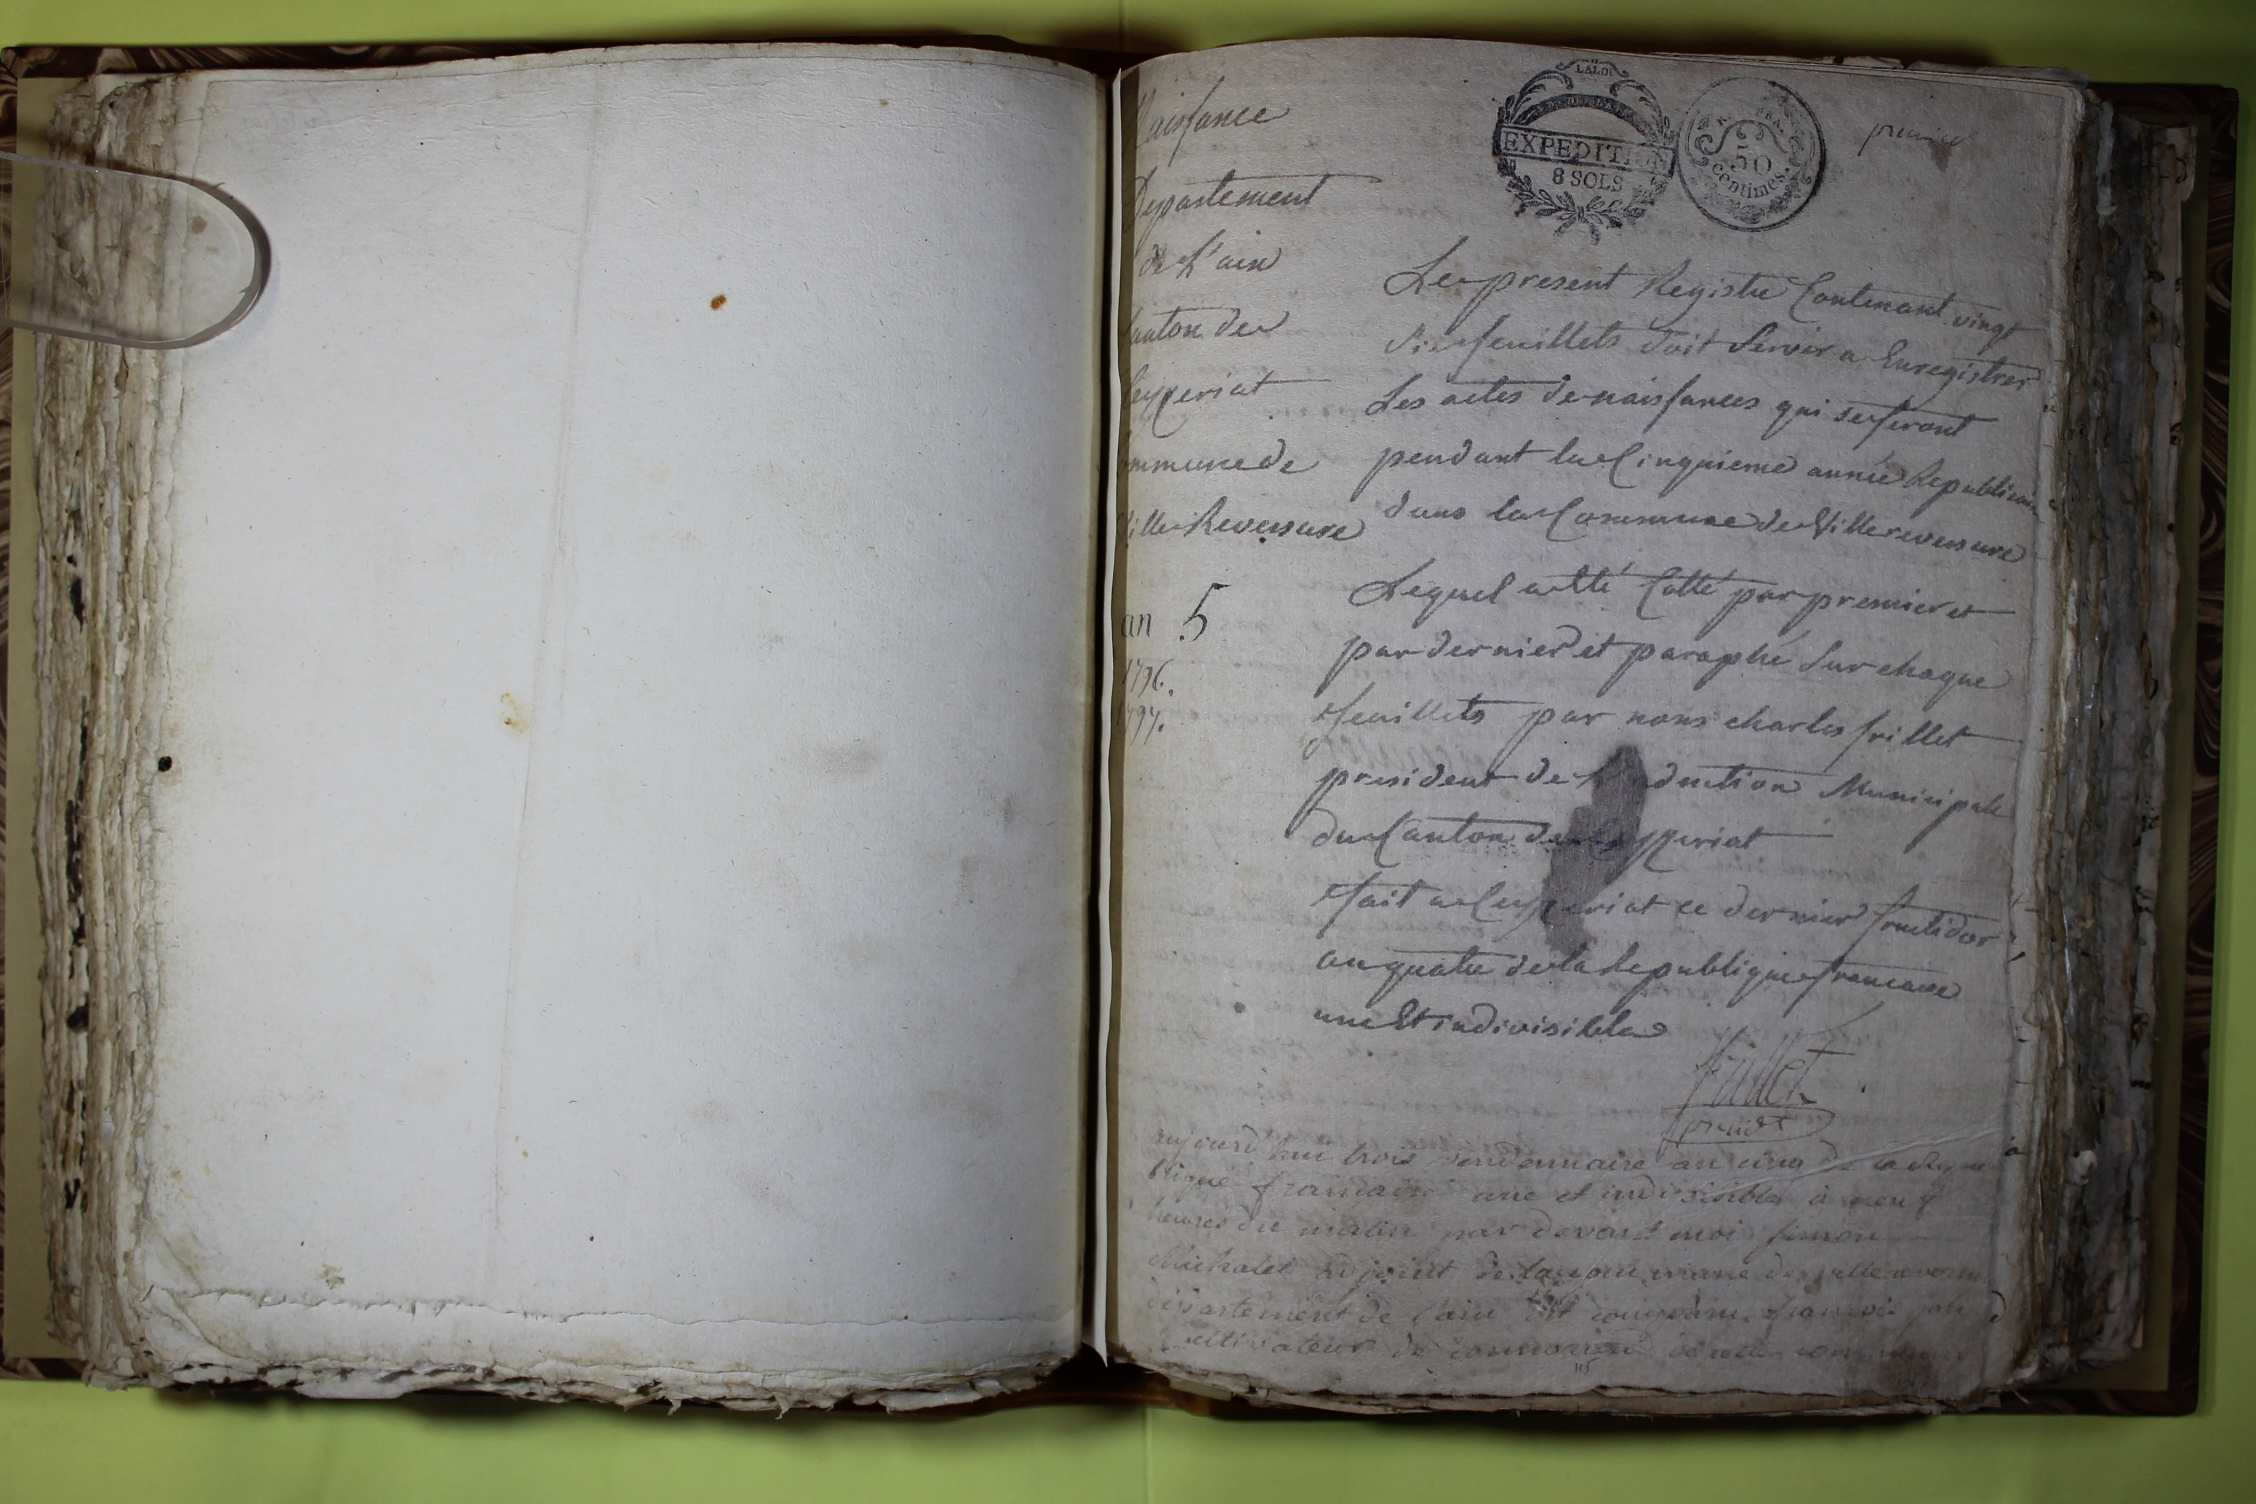 Naissance
Departement
de L'ain
Canton de
Ceyzeriat
Commune de
Ville Reversure
an 5
1796.
1797.
LA LOI
EXPEDITION
8 SOLS
50
centimes.
premier
Le present Registre Contenant vingt
Six feuillets doit Servir a Enregistrer
Les actes de naissances qui se feront
pendant la Cinquieme année Republicaine
dans la Commune de Villereversure
Lequel a été Cotté par premier et
par dernier et paraphé Sur chaque
feuillets par nous charles frillet
president de duction Municipale
du Canton de Ceyzeriat
fait a Ceyzeriat ce dernier fructidor
an quatre de la Republique francaise
une Et indivisible
frillet
presidt
aujourd'hui trois vendemiaire an cinq de la Repu
blique francaise une et indivisible à neuf
heures du matin par devant moi simon
Michalet adjoint de la commune de villereversure
departement de l'ain est comparu francois
cultivateur de
115